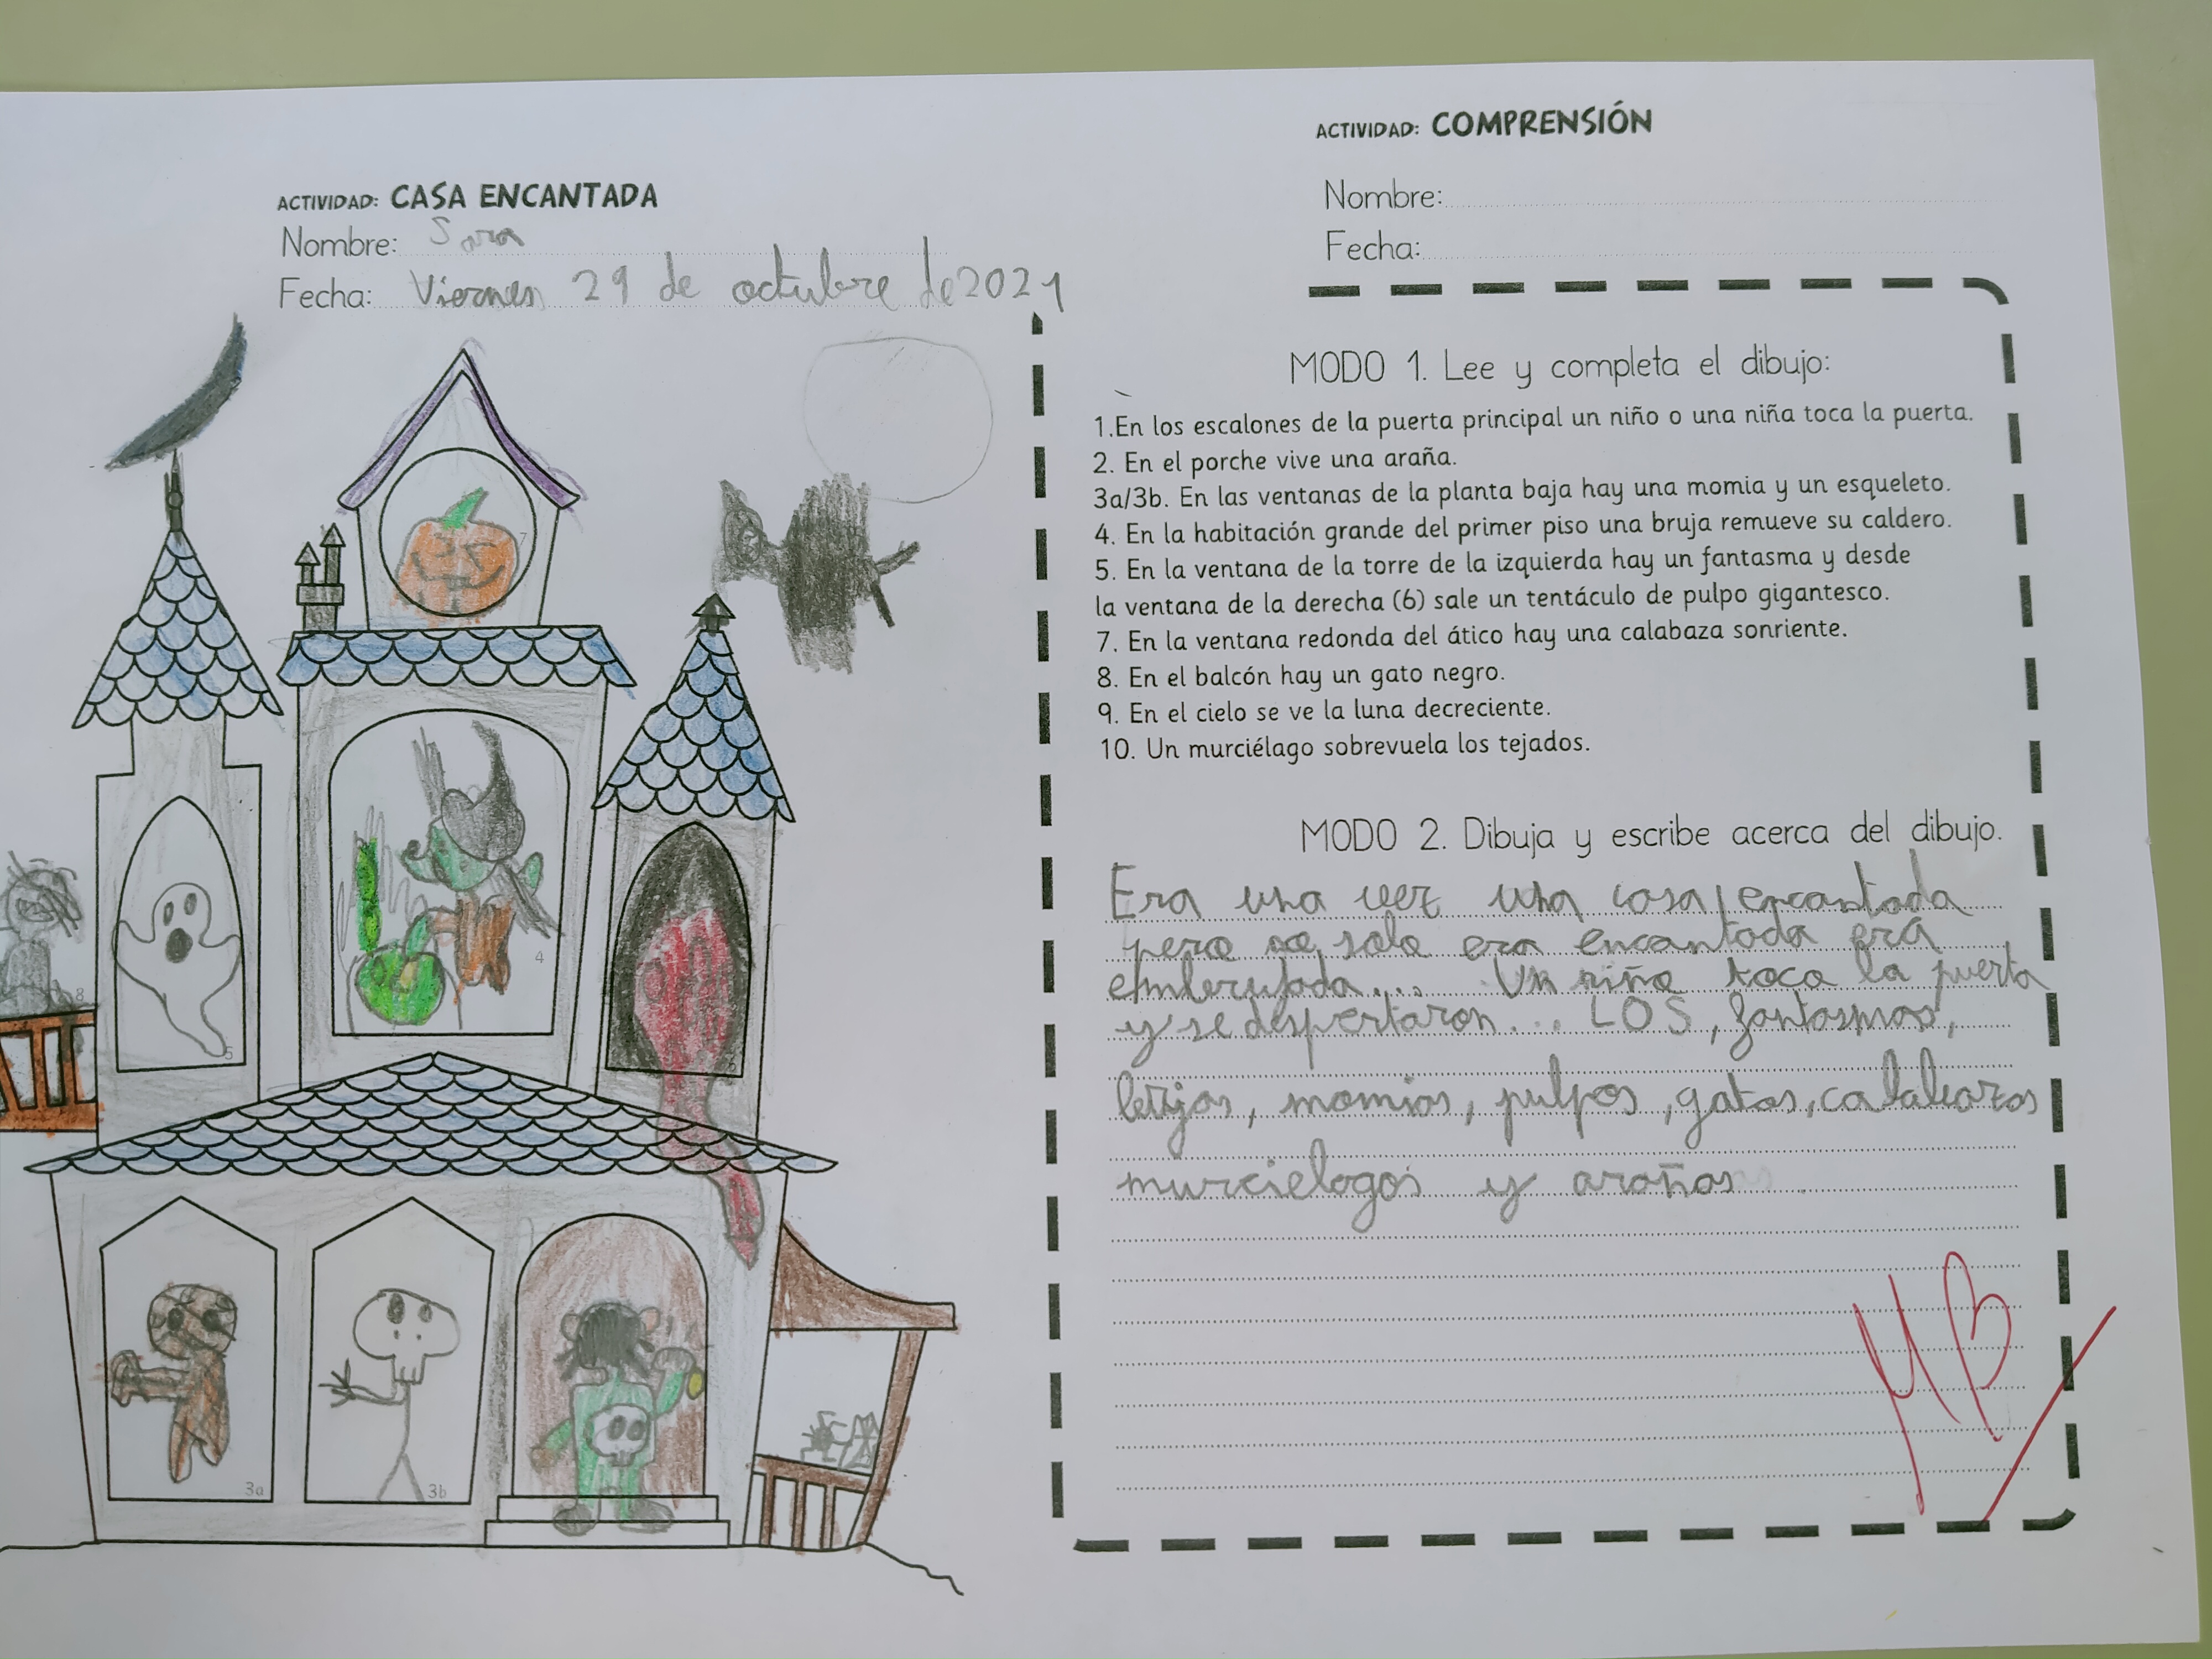 ACTIVIDAD: CASA ENCANTADA
Nombre: Sara
Fecha: Viernes 29 de octubre de 2021
7
4
8
5
6
3a
3b
ACTIVIDAD: COMPRENSIÓN
Nombre:
Fecha:
MODO 1. Lee y completa el dibujo:
1.En los escalones de la puerta principal un niño o una niña toca la puerta.
2. En el porche vive una araña.
3a/3b. En las ventanas de la planta baja hay una momia y un esqueleto.
4. En la habitación grande del primer piso una bruja remueve su caldero.
5. En la ventana de la torre de la izquierda hay un fantasma y desde
la ventana de la derecha (6) sale un tentáculo de pulpo gigantesco.
7. En la ventana redonda del ático hay una calabaza sonriente.
8. En el balcón hay un gato negro.
9. En el cielo se ve la luna decreciente.
10. Un murciélago sobrevuela los tejados.
MODO 2. Dibuja y escribe acerca del dibujo.
Era una vez una casa encantada
pero no solo era encantada era
embrujada.... Un niño toca la puerta
y se despertaron... LOS, fantasmas,
momias, pulpos, gatos, calabazas
murcielagos y arañas
MB